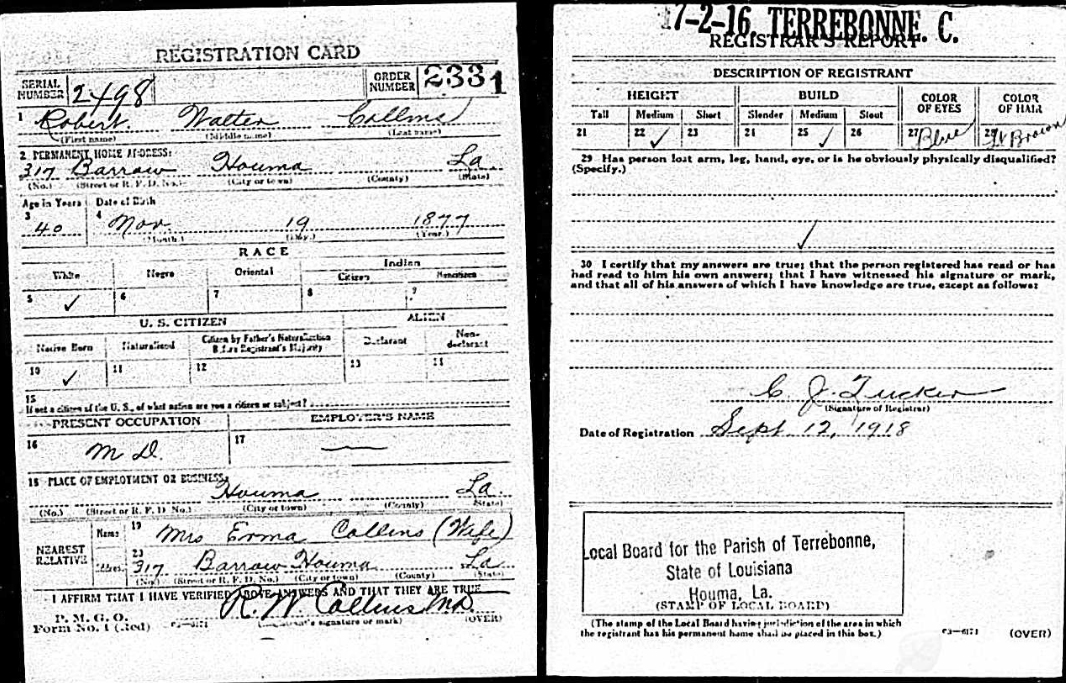 REGISTRATION CARD
SERIAL NUMBER 2498 ORDER NUMBER 2331
1 Robert Walter Collins
(First name) (Middle name) (Last name)
2 PERMANENT HOME ADDRESS:
317 Barrow Houma La
(No.) (Street or R. F. D. No.) (City or town) (County) (State)
Age in Years Date of Birth
3 4
40 Nov. 19 1877
(Month.) (Day.) (Year.)
RACE
White Negro Oriental Indian
Citizen Noncitizen
5 ✓ 6 7 8 9
U. S. CITIZEN ALIEN
Native Born Naturalized Citizen by Father's Naturalization Before Registrant's Majority Declarant Non-declarant
10 ✓ 11 12 13
15
If not a citizen of the U. S., of what nation are you a citizen or subject?
PRESENT OCCUPATION EMPLOYER'S NAME
16 M D. 17 —
18 PLACE OF EMPLOYMENT OR BUSINESS:
Houma La
(No.) (Street or R. F. D. No.) (City or town) (County) (State)
NEAREST RELATIVE Name 19 Mrs Erma Collins (Wife)
Address 317 Barrow Houma La
(No.) (Street or R. F. D. No.) (City or town) (County) (State)
I AFFIRM THAT I HAVE VERIFIED ABOVE ANSWERS AND THAT THEY ARE TRUE
R. W. Collins MD
P. M. G. O.
Form No. 1 (Red) (Registrant's signature or mark) (OVER)
17-2-16. TERREBONNE. C.
REGISTRAR'S REPORT
DESCRIPTION OF REGISTRANT
HEIGHT BUILD COLOR OF EYES COLOR OF HAIR
Tall Medium Short Slender Medium Stout
21 22 ✓ 23 24 25 ✓ 26 27 Blue 28 Lt Brown
29 Has person lost arm, leg, hand, eye, or is he obviously physically disqualified?
(Specify.)
✓
30 I certify that my answers are true; that the person registered has read or has
had read to him his own answers; that I have witnessed his signature or mark,
and that all of his answers of which I have knowledge are true, except as follows:
C. J. Tucker
(Signature of Registrar)
Date of Registration Sept 12, 1918
Local Board for the Parish of Terrebonne,
State of Louisiana
Houma, La.
(STAMP OF LOCAL BOARD)
(The stamp of the Local Board having jurisdiction of the area in which
the registrant has his permanent home shall be placed in this box.)
03—6171 (OVER)